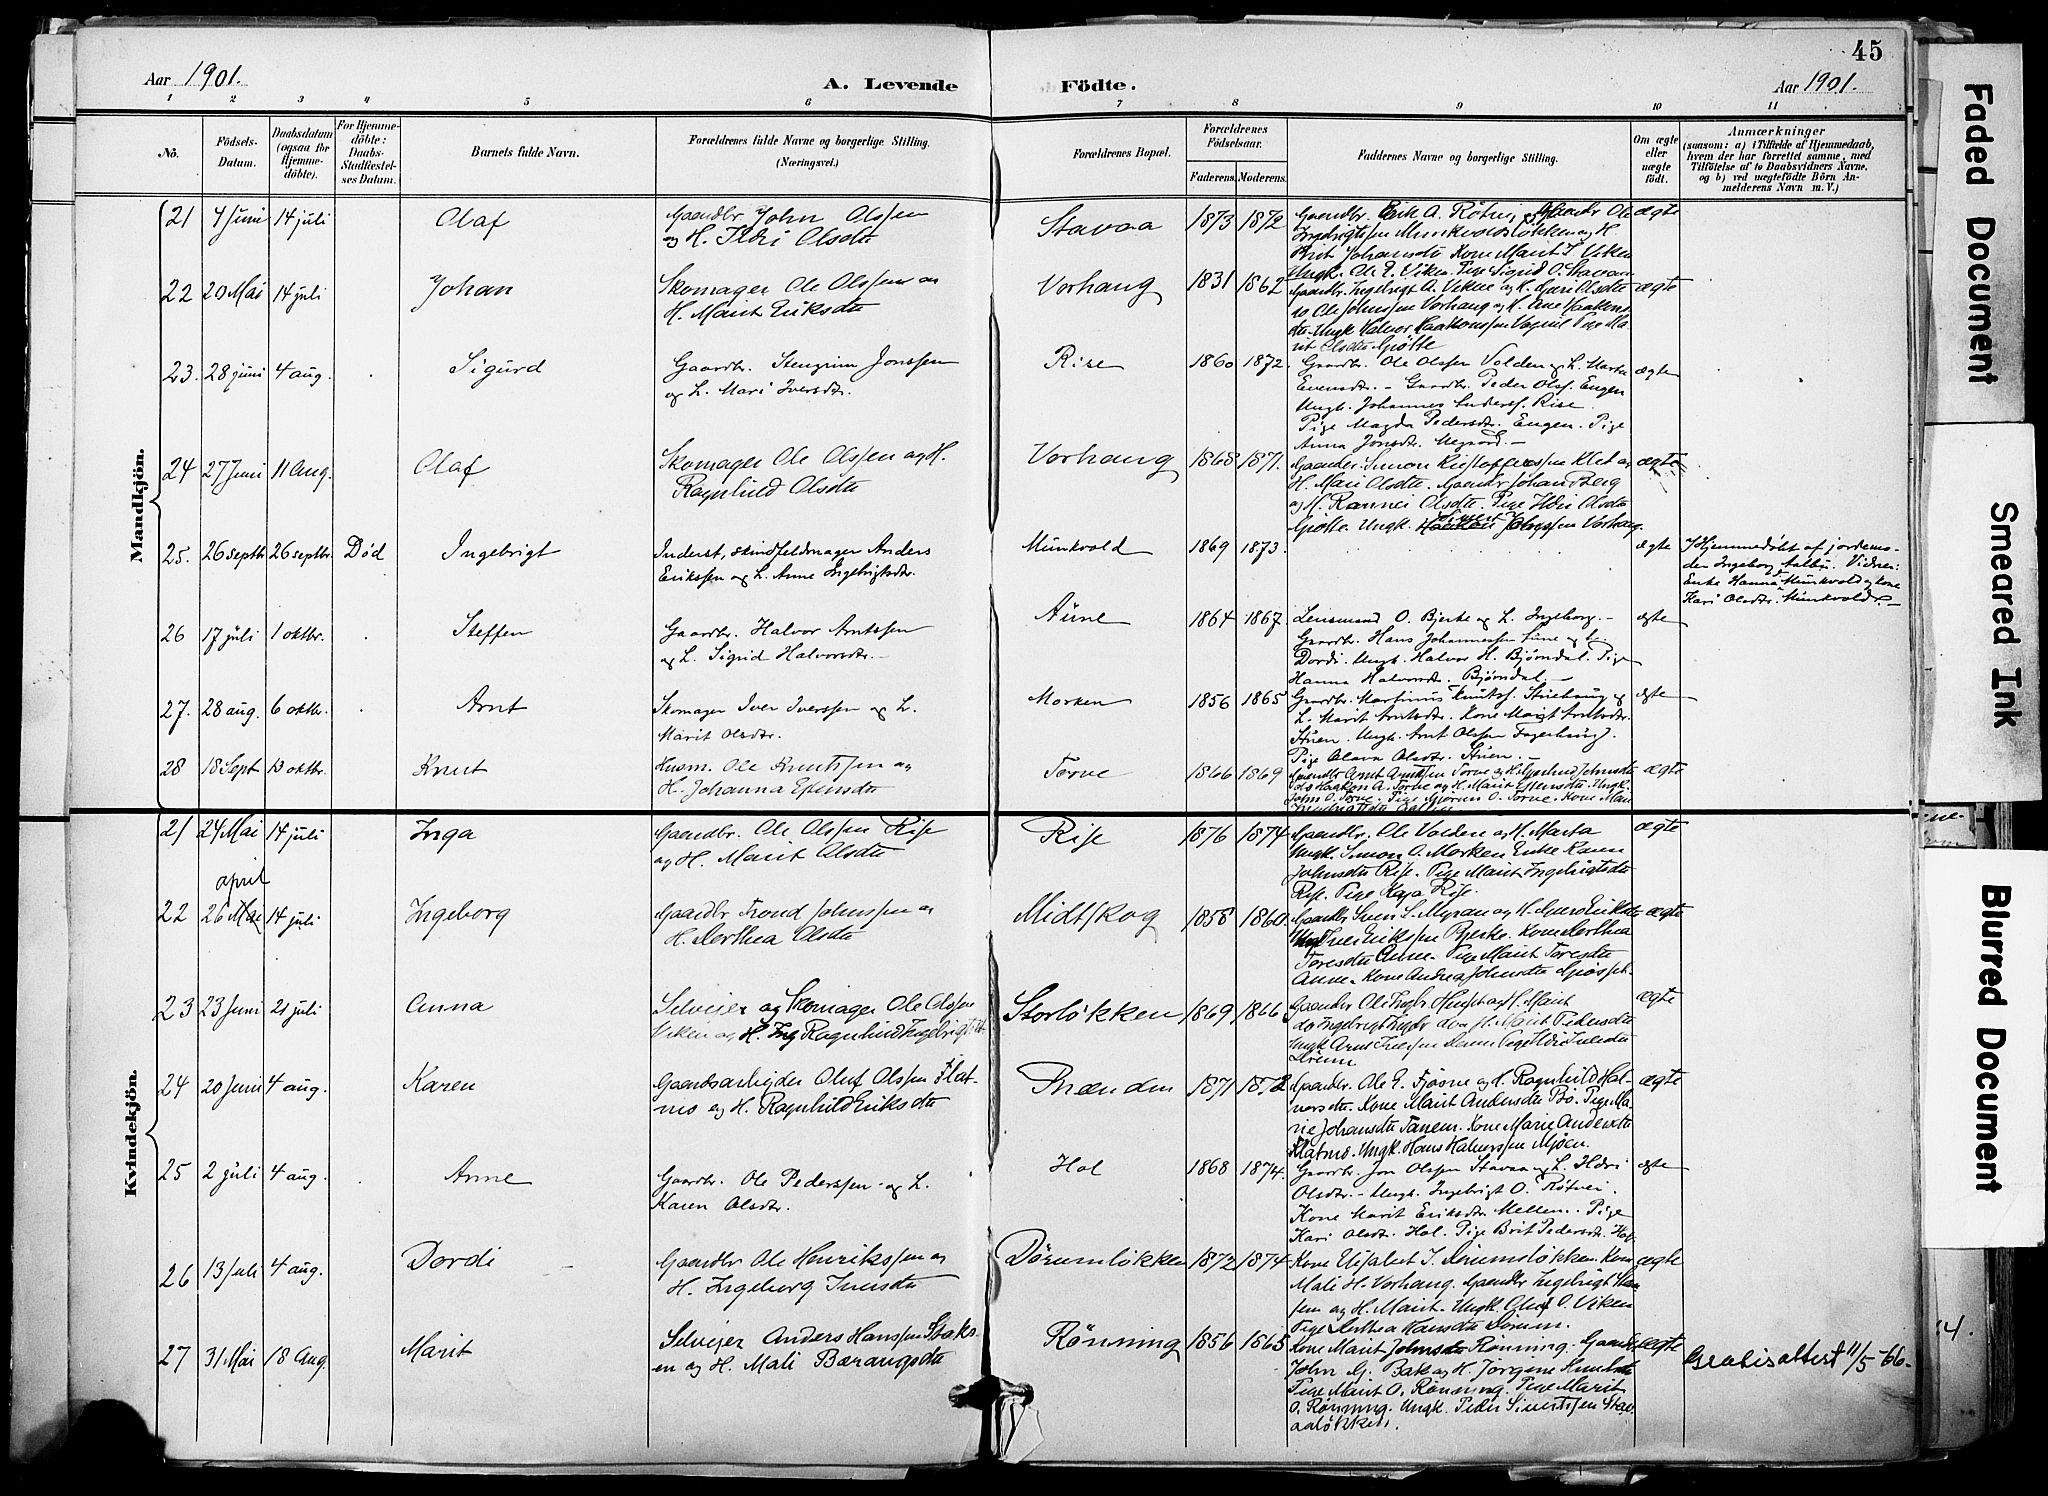 45
Aar 1901.
A. Levende
Födte.
Aar 1901.
1 2 3 4 5 6 7 8 9 10 11
No.
Födsels-
Datum.
Daabsdatum
(ogsaa for
Hjemme-
döbte).
For Hjemme-
döbte:
Daabs-
Stadfæstel-
ses Datum.
Barnets fulde Navn.
Forældrenes fulde Navne og borgerlige Stilling.
(Næringsvei.)
Forældrenes Bopæl.
Forældrenes
Födselsaar.
Faderens. Moderens.
Faddernes Navne og borgerlige Stilling.
Om ægte
eller
uægte
födt.
Anmærkninger
(saasom: a) i Tilfælde af Hjemmedaab,
hvem der har forrettet samme, med
Tilföielse af to Daabsvidners Navne,
og b) ved uægtefödte Börn An-
melderens Navn m. V.)
Mandkjön.
21 4 Juni 14 juli Olaf
Gaardbr John Olssen
og H. Ildri Olsdtr
Stavaa 1873 1872
Gaardbr. Erik A. Rötvei, Gaardbr Ole
Ingebrigtssen Munkvoldsløkken og H.
Brit Johansdtr Kone Marit I Viken
Ungk. Ole E. Viken. Pige Sigrid O. Stavaa
ægte
22 20 Mai 14 juli Johan
Skomager Ole Olssen og
H. Marit Eriksdtr
Vorhaug 1831 1862
Gaardbr. Ingebrigt A. Viken og H. Guri Olsdtr
do Ole Johnssen Vorhaug og H. Ane Haakens
dtr. Ungk Halvor Haakonssen Vognil Pige Ma
rit Olsdtr Gjötte
ægte
23. 28 juni 4 aug. Sigurd
Gaardbr. Stengrim Jonssen
og L. Mari Iversdtr.
Rise 1860 1872.
Gaardbr. Ole Olssen Volden og L. Marta
Evensdtr. – Gaardbr. Peder Olss. Engen
Ungk. Johannes Anderss. Rise.
Pige Magda Pedersdtr. Engen. Pige
Anna Jonsdtr. Megard. –
ægte
24 27 Juni 11 Aug. Olaf
Skomager Ole Olssen og H.
Ragnhild Olsdtr
Vorhaug 1868 1871.
Gaardbr. Simon Kristofferssen Klet og
H. Mari Olsdtr. Gaardbr Johan Berg
og H. Rannei Olsdtr. Pige Ildri Olsdtr
Gjötte. Ungk. Johnssen Vorhaug.
ægte
25. 26 septbr. 26 septbr. Död Ingebrigt
Inderst, skindfeldmager Anders
Erikssen og L. Anne Ingebrigtsdtr.
Munkvold 1869 1873.
ægte
Hjemmedöbt af jordemo-
der Ingeborg Aalbu. Vidner:
Enke Hanna Munkvold og kone
Kari Olsdtr. Munkvold. –
26 17 juli 1 oktbr. Steffen
Gaardbr. Halvor Arntssen
og L. Sigrid Halvorsdtr. –
Aune 1864 1867.
Lensmand O. Bjerke og L. Ingeborg. –
Gaardbr. Hans Johannessen Aune og L.
Dordi. Ungk. Halvor H. Björndal. Pige
Hanna Halvorsdtr. Björndal. –
ægte
27. 28 aug. 6 oktbr. Arnt
Skomager Iver Iverssen og L.
Marit Olsdtr.
Morken 1856 1865
Gaardbr. Martinus Knutss. Stuehaug og
L. Marit Arntsdtr. Kone Marit Arntsdtr.
Stuen. Ungk. Arnt Olssen Fagerhaug.
Pige Olava Olsdtr. Stuen. –
ægte
28 18 Sept 13 oktbr. Knut
Husm. Ole Knutssen og
H. Johanna Esensdtr
Torve 1866 1869
Gaardbr Arnt Arntssen Torve og H. Johnsdtr
do Haaken A. Torve og H. Marit Ungk.
John O. Torve. Pige O. Torve. Kone Mari
ægte
Kvindekjön.
21 24 Mai 14 juli Inga
Gaardbr. Ole Olssen Rise
og H. Marit Olsdtr
Rise 1876 1874
Gaardbr. Ole Volden og H. Marta
Ungk. Simon O. Morken Enke Karen
Johnsdtr Rise. Pige Marit Ingebrigtsdtr
Rise. Pige Kaja Rise.
ægte
april
22 26 Mai 14 juli Ingeborg
Gaardbr Trond Johnssen og
H. Berthea Olsdtr
Midtskog 1858 1860.
Gaardbr Sven S. Myran og H. Guro Eriksdtr
Ungk Iver Erikssen Bjerke. Kone Berthea
Toresdtr Aune. Pige Marit Toresdtr
Aune. Kone Andrea Johnsdtr
ægte
23 23 Juni 21 juli Anna
Selveier og Skomager Ole Olssen
Viken og H. Ing Ragnhild Ingebrigtsdtr
Storlökken 1869 1866
Gaardbr Ole Ingbr og H. Marit
do Ingebrigt H. Marit Pedersdtr
Ungk Arnt
ægte
24 20 Juni 4 aug. Karen
Gaardsarbejder Oluf Olssen Flat-
mo og H. Ragnhild Eriksdtr
Brænden 1871 1872
Gaardbr. Ole E. Fjösne og H. Ragnhild Hal-
vorsdtr. Kone Marit Andersdtr Bö. Pige Ma-
rie Johansdtr Tanem. Kone Marie Andersdtr
Flatmo. Ungk. Hans Halvorssen Mjöen.
ægte
25 2 juli 4 aug. Anne
Gaardbr. Ole Pederssen og L.
Karen Olsdtr.
Hol 1868 1874.
Gaardbr. Jon Olssen Stavaa og L. Ildri
Olsdtr. – Ungk. Ingebrigt O. Rötvei.
Kone Marit Eriksdtr. Mellem. Pige
Kari Olsdtr. Hol. Pige Brit Pedersdtr. Hol.
ægte
26 13 Juli 4 aug. Dordi
Gaardbr Ole Henrikssen og
H. Ingeborg Iversdtr
Dörumlökken 1872 1874
Kone Elisabet I. Dörumslökken. Kone
Mali H. Vorhaug. Gaardbr Ingebrigt
sen og H. Marit. Ungk. Oluf O. Viken
Pige Berthea Hansdtr Dörum.
ægte
27 31 Mai 18 Aug. Marit
Selveier Anders Hanssen Stoks-
en og H. Mali Bærangsdtr
Rönning 1856 1865
Kone Marit Johnsdtr Rönning. Gaardbr
John G. Bak og H. Jörgine
Pige Marit O. Rönning. Pige Marit
O. Rönning. Ungk. Peder Sivertssen Stav-
aalökken.
ægte
Gratisattest 11/5-66.
Faded Document
Smeared Ink
Blurred Document